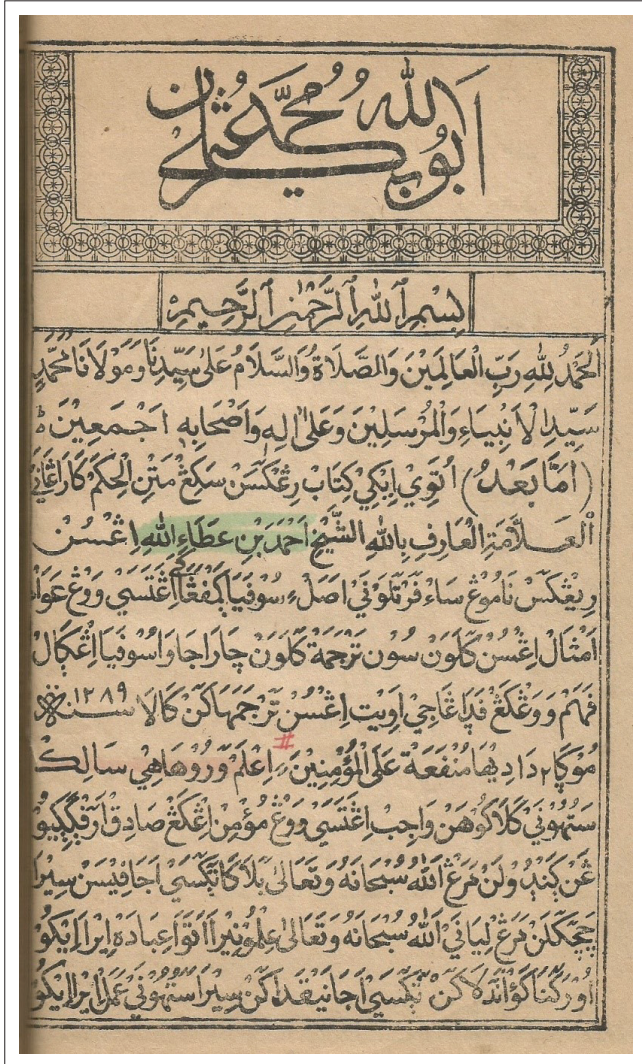 الله محمد
ابوبكر عثمان
بِسْمِ ٱللّٰهِ ٱلرَّحْمٰنِ ٱلرَّحِيْمِ
اَلْحَمْدُ لِلّٰهِ رَبِّ الْعَالَمِيْنَ وَالصَّلَاةُ وَالسَّلَامُ عَلٰى سَيِّدِنَا وَمَوْلَانَا مُحَمَّدٍ
سَيِّدِ الْاَنْبِيَاءِ وَالْمُرْسَلِيْنَ وَعَلٰى اٰلِهٖ وَاَصْحَابِهٖ اَجْمَعِيْنَ
(اَمَّا بَعْدُ) اُتَوِي اِيكِي كِتَابْ رِڠْكَسَنْ سَكِڠْ مَتَنْ الْحِكَمْ كَاراڠَانَيْ
الْعَلَّامَةِ الْعَارِفِ بِاللّٰهِ الشَّيْخِ اَحْمَدَ بْنِ عَطَاءِ اللّٰهِ اِڠْسُنْ
رِيڠْكَسْ نَامُوڠْ سَاءْ فَرَتَلَوْنَي اَصَلْ سُوفَيَا اِڠَتَسَي ووڠْ عَوَامْ
اَمْثَالْ اِڠْسُنْ كَلَوَنْ سُونْ تَرْجَمَةْ كَلَوَنْ چَارَا جَاوَا سُوفَيَا اِڠْكَالْ
فَهَمْ ووڠْكَڠْ فَدَا ڠَاجِي اَوِيتْ اِڠْسُنْ تَرْجَمَهَاكَنْ كَالَا سنة ١٢٨٩
مُوڮَا٢ دَادِيهَا مَنْفَعَةْ عَلَى الْمُؤْمِنِيْنَ اِعْلَمْ وَرُوهَا هَيْ سَالِكْ
سَتُهُوني كَلَاكُوهَنْ وَاجِبْ اِڠَتَسَي ووڠْ مُؤْمِنْ اِڠْكَڠْ صَادِقْ
مَرَڠْ اللّٰهُ سُبْحَانَهُ وَتَعَالٰى اَجَا سِيْرَا
مَرَڠْ لِيَانَي اللّٰهُ سُبْحَانَهُ وَتَعَالٰى عِلْمُو نِيْرَا اُتَوَا عِبَادَةْ اِيْرَا اِيْكُو
اَجَا سِيْرَا سَتُهُوني عَمَلْ اِيْرَا اِيْكُو